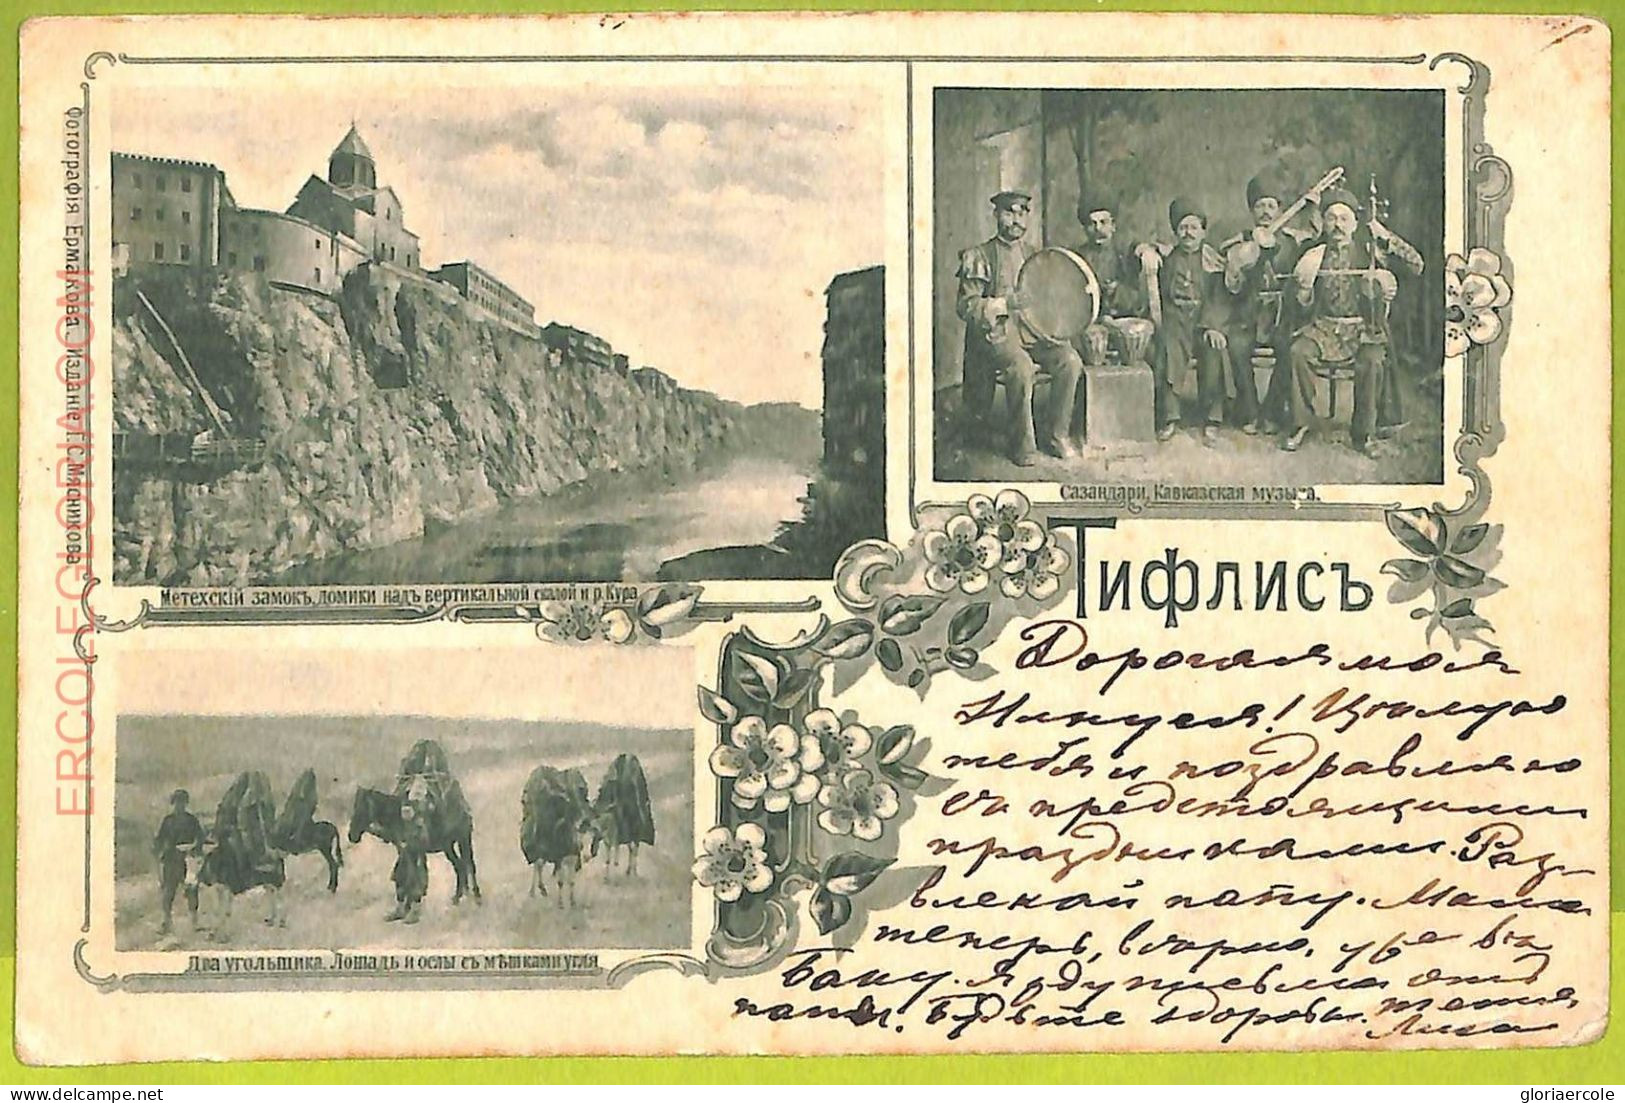 Фотографія Ермакова. Изданіе Г. С. Мясникова
ERCOLEGLORIA.COM
Метехскій замокъ, домики надъ вертикальной скалой и р. Кура
Сазандари, Кавказская музыка.
Тифлисъ
Два угольщика. Лошадь и ослы съ мѣшками угля
Дорогая моя
Нинуся! Цѣлую
тебя и поздравляю
съ предстоящими
праздниками. Раз-
влекай папу. Мама
теперь, вѣрно, уѣ въ
Баку. Я жду письма отъ
папы. Будьте здоровы. тетя
gloriaercole